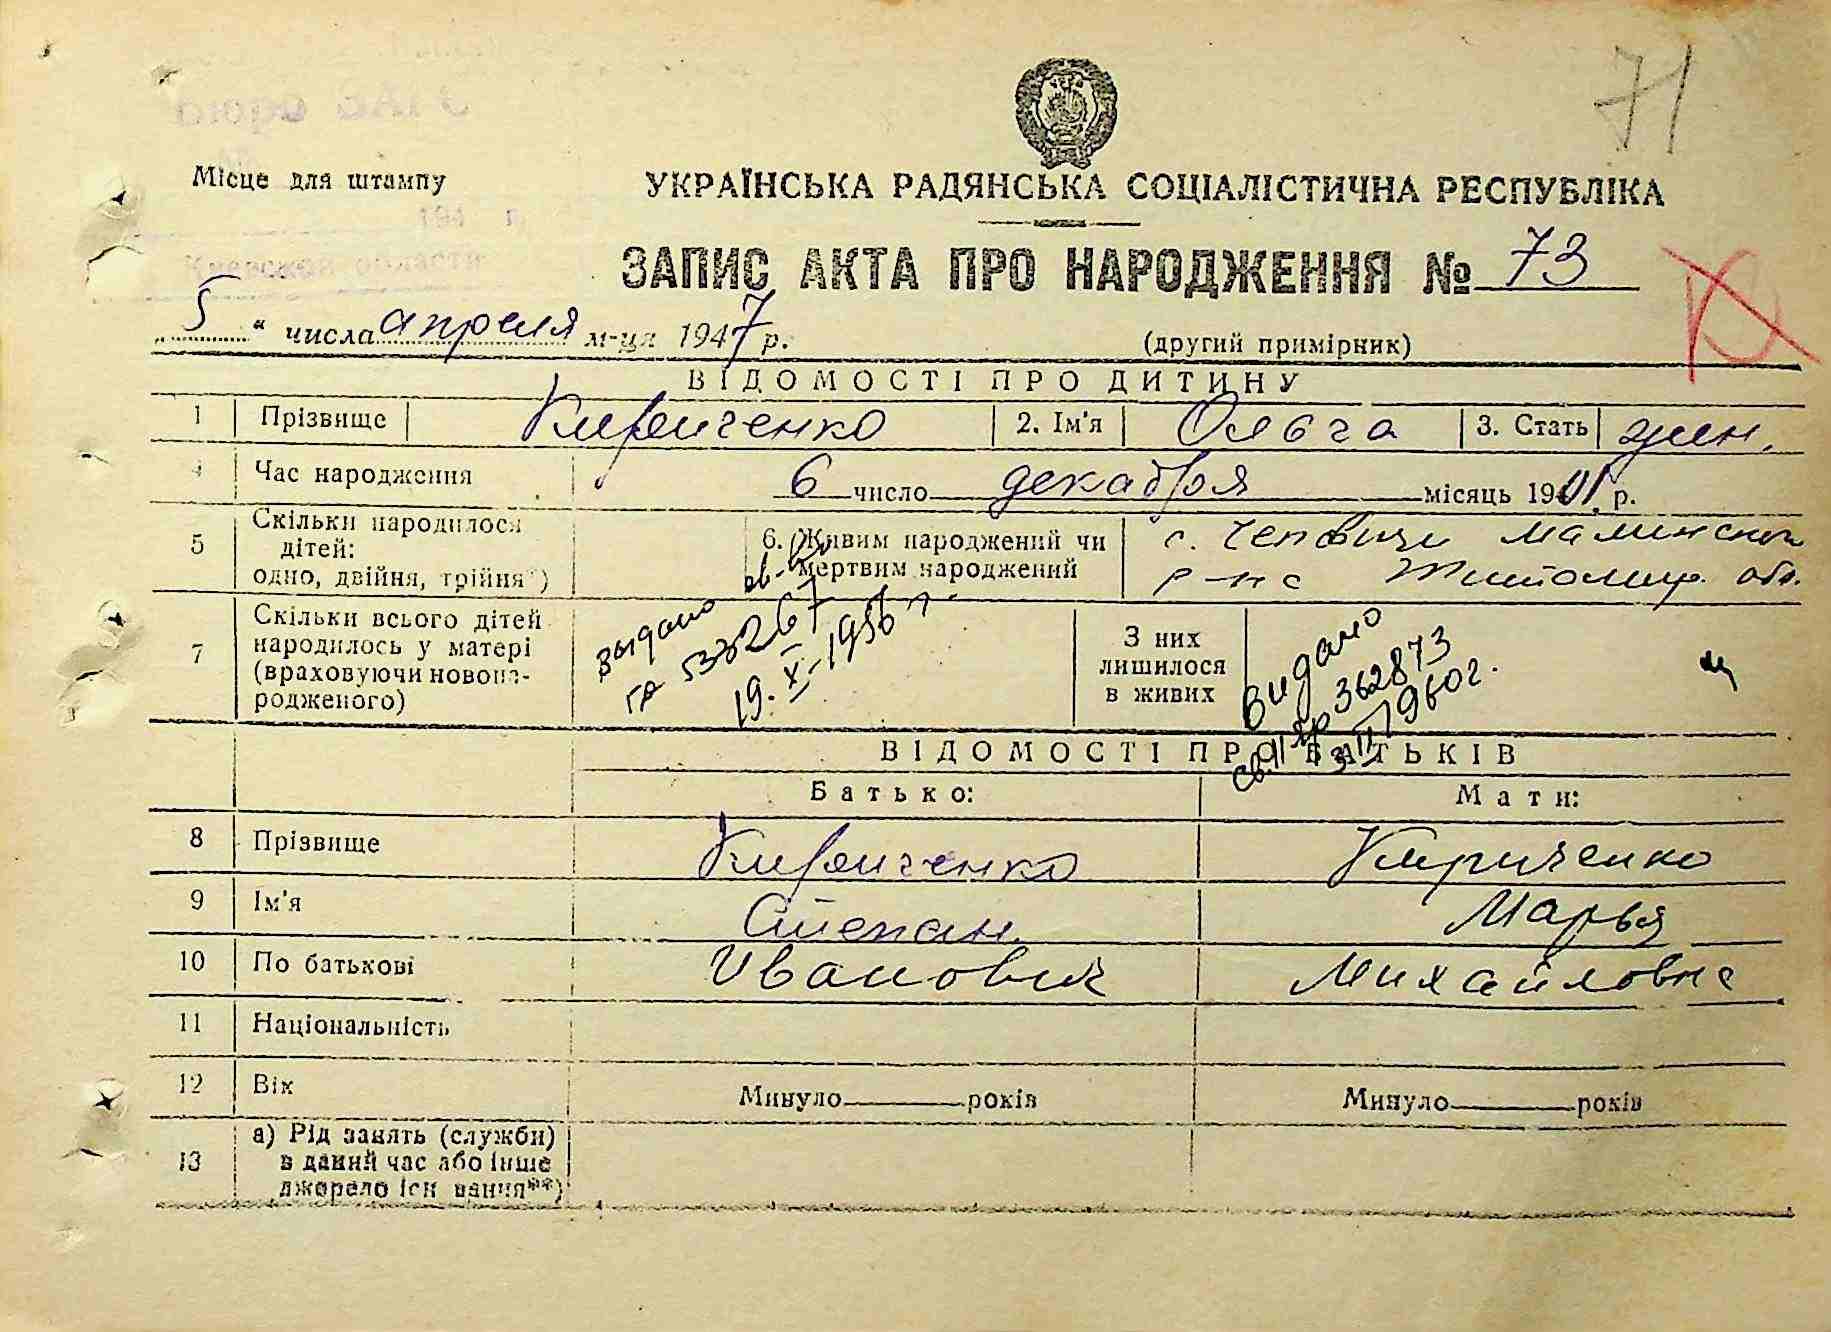 71
Місце для штампу
УКРАЇНСЬКА РАДЯНСЬКА СОЦІАЛІСТИЧНА РЕСПУБЛІКА
194 г.
Киевской области
ЗАПИС АКТА ПРО НАРОДЖЕННЯ № 73
„ 5 “ числа апреля м-ця 1947 р.
(другий примірник)
ВІДОМОСТІ ПРО ДИТИНУ
1 Прізвище Кириченко 2. Ім'я Ольга 3. Стать жен.
4 Час народження 6 число декабря місяць 1901 р.
5 Скільки народилося дітей: одно, двійня, трійня*)
6. Живим народжений чи мертвим народжений
с. Чеповичи Малинского
р-на Житомир. обл.
7 Скільки всього дітей народилось у матері (враховуючи новона-родженого)
выдано св-во
533267
19.XI-1956 г.
З них лишилося в живих
Видано
св. II 362873
1960г.
ВІДОМОСТІ ПРО БАТЬКІВ
Батько: Мати:
8 Прізвище Кириченко Кириченко
9 Ім'я Степан Марья
10 По батькові Иванович Михайловна
11 Національність
12 Вік Минуло років Минуло років
13 а) Рід занять (служби)
в даний час або інше
джерело існування**)